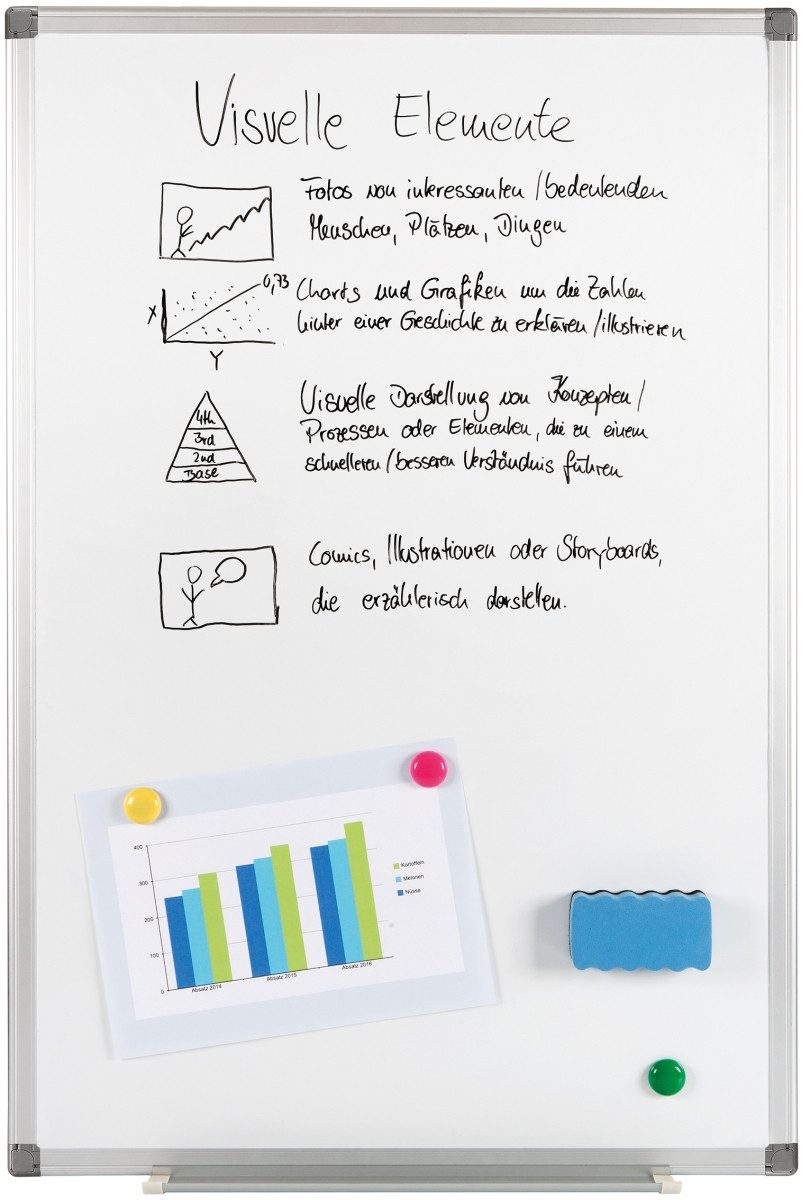 Visuelle Elemente
Fotos von interessanten / bedeutenden
Menschen, Plätzen, Dingen
0,73
X
Y
Charts und Grafiken um die Zahlen
hinter einer Geschichte zu erklären / illustrieren
4th
3rd
2nd
Base
Visuelle Darstellung von Konzepten /
Prozessen oder Elementen, die zu einem
schnelleren / besseren Verständnis führen
Comics, Illustrationen oder Storyboards,
die erzählerisch darstellen.
400
300
200
100
0
Absatz 2014
Absatz 2015
Absatz 2016
Kartoffeln
Melonen
Nüsse